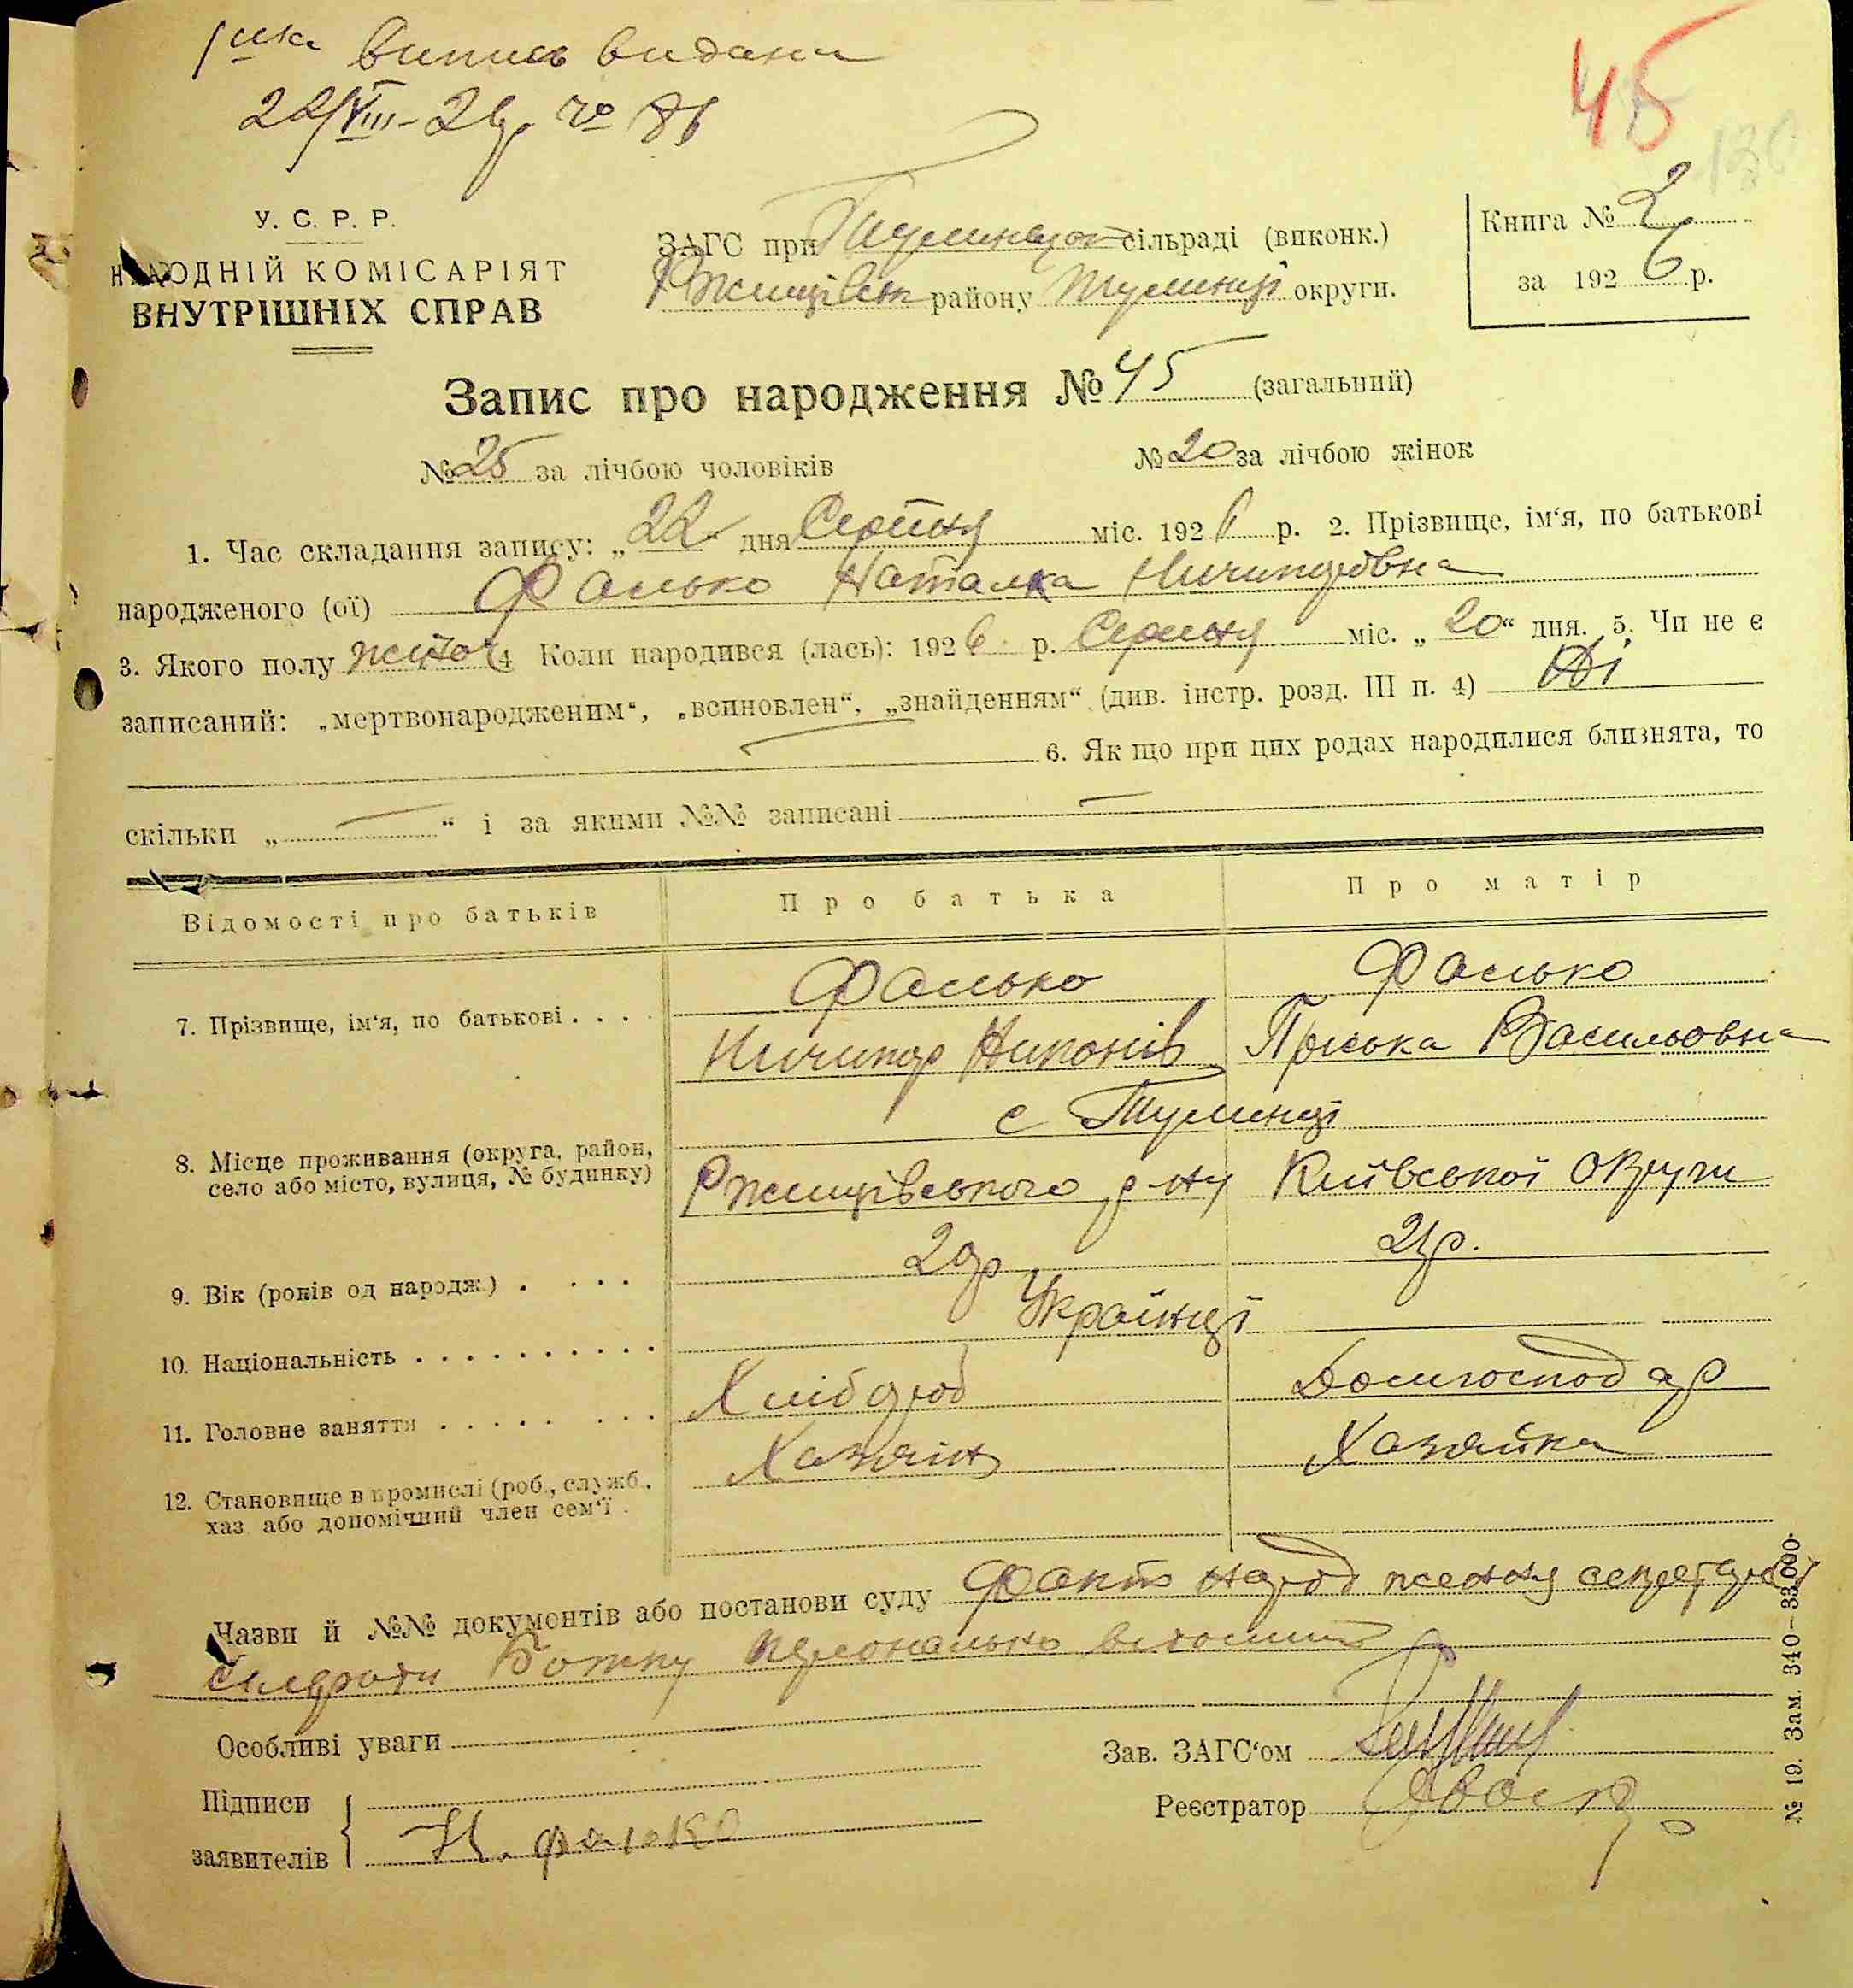 1шка випись видана
22/VIII-26р. № 86
45
У. С. Р. Р.
НАРОДНІЙ КОМІСАРІЯТ
ВНУТРІШНІХ СПРАВ
ЗАГС при Тулинецькій сільраді (виконк.)
Ржищівськ району округи.
Книга № 2
за 192 6 р.
Запис про народження № 45 (загальний)
№ 25 за лічбою чоловіків
№ 20 за лічбою жінок
1. Час складання запису: „22“ дня Серпня міс. 192 6 р. 2. Прізвище, ім‘я, по батькові
народженого (ої) Фалько Наталка Ничипорівна
3. Якого полу жіноч 4 Коли народився (лась): 192 6 р. Серпня міс. „20“ дня. 5. Чи не є
записаний: „мертвонародженим“, „всиновлен“, „знайденням“ (див. інстр. розд. III п. 4) Ні
6. Як що при цих родах народилися близнята, то
скільки „ — “ і за якими №№ записані —
Відомості про батьків
Про батька
Про матір
7. Прізвище, ім‘я, по батькові . . . .
Фалько
Фалько
Ничипор Никонів
Пріська Васильовна
с Тулинці
8. Місце проживання (округа, район,
село або місто, вулиця, № будинку)
Ржищівського р-ну Київської Округи
9. Вік (років од народж.) . . . .
21р.
10. Національність . . . . . . . . . .
Українці
11. Головне заняття . . . . . . . .
Хлібороб
Домгосподар
12. Становище в промислі (роб., служб.,
хаз. або допомічний член сем‘ї .
Хазяїн
Хазяйка
Назви й №№ документів або постанови суду Факт народження секретарові
сільради Божку персонально
Особливі уваги
Зав. ЗАГС‘ом
Підписи
заявителів
Н. Фалько
Реєстратор
№ 19. Зам. 340–33.000.